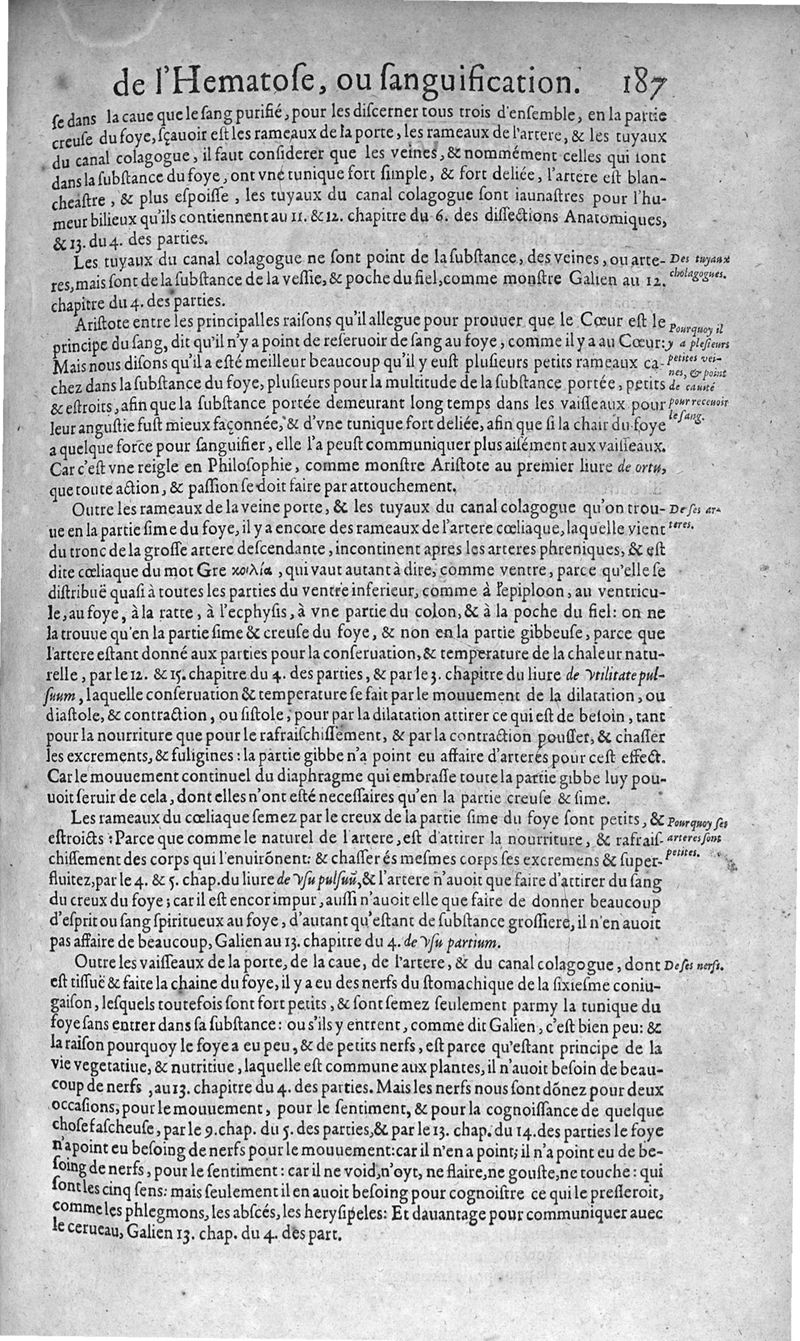 de l'Hematose, ou sanguification. 187
se dans la caue que le sang purifié, pour les discerner tous trois d'ensemble, en la partie
creuse du foye, sçauoir est les rameaux de la porte, les rameaux de l'artere, & les tuyaux
du canal colagogue, il faut considerer que les veines, & nommément celles qui sont
dans la substance du foye, ont vne tunique fort simple, & fort deliée, l'artere est blan-
cheastre, & plus espoisse, les tuyaux du canal colagogue sont iaunastres pour l'hu-
meur bilieux qu'ils contiennent au 11. & 12. chapitre du 6. des dissections Anatomiques,
& 13. du 4. des parties.
Les tuyaux du canal colagogue ne sont point de la substance, des veines, ou arte-
res, mais sont de la substance de la vessie, & poche du fiel, comme monstre Galien au 12.
chapitre du 4. des parties.
Des tuyaux
cholagogues.
Aristote entre les principalles raisons qu'il allegue pour prouuer que le Cœur est le
principe du sang, dit qu'il n'y a point de reseruoir de sang au foye, comme il y a au Cœur:
Mais nous disons qu'il a esté meilleur beaucoup qu'il y eust plusieurs petits rameaux ca-
chez dans la substance du foye, plusieurs pour la multitude de la substance portée, petits
& estroits, afin que la substance portée demeurant long temps dans les vaisseaux pour
leur angustie fust mieux façonnée, & d'vne tunique fort deliée, afin que si la chair du foye
a quelque force pour sanguifier, elle l'a peust communiquer plus aisément aux vaisseaux.
Car c'est vne reigle en Philosophie, comme monstre Aristote au premier liure de ortu,
que toute action, & passion se doit faire par attouchement.
Pourquoy il
y a plesieurs
petites vei-
nes, & point
de cauité
pour receuoir
le sang.
Outre les rameaux de la veine porte, & les tuyaux du canal colagogue qu'on trou-
ue en la partie sime du foye, il y a encore des rameaux de l'artere cœliaque, laquelle vient
du tronc de la grosse artere descendante, incontinent apres les arteres phreniques, & est
dite cœliaque du mot Gre κοιλία, qui vaut autant à dire, comme ventre, parce qu'elle se
distribuë quasi à toutes les parties du ventre inferieur, comme à l'epiploon, au ventricu-
le, au foye, à la ratte, à l'ecphysis, à vne partie du colon, & à la poche du fiel: on ne
la trouue qu'en la partie sime & creuse du foye, & non en la partie gibbeuse, parce que
l'artere estant donné aux parties pour la conseruation, & temperature de la chaleur natu-
relle, par le 12. & 15. chapitre du 4. des parties, & par le 3. chapitre du liure de vtilitate pul-
suum, laquelle conseruation & temperature se fait par le mouuement de la dilatation, ou
diastole, & contraction, ou sistole, pour par la dilatation attirer ce qui est de besoin, tant
pour la nourriture que pour le rafraischissement, & par la contraction pousser, & chasser
les excrements, & fuligines: la partie gibbe n'a point eu affaire d'arteres pour cest effect.
Car le mouuement continuel du diaphragme qui embrasse toute la partie gibbe luy pou-
uoit seruir de cela, dont elles n'ont esté necessaires qu'en la partie creuse & sime.
De ses ar-
teres.
Les rameaux du cœliaque semez par le creux de la partie sime du foye sont petits, &
estroicts: Parce que comme le naturel de l'artere, est d'attirer la nourriture, & rafrais-
chissement des corps qui l'enuirõnent: & chasser és mesmes corps ses excremens & super-
fluitez, par le 4. & 5. chap. du liure de vsu pulsuũ, & l'artere n'auoit que faire d'attirer du sang
du creux du foye; car il est encor impur, aussi n'auoit elle que faire de donner beaucoup
d'esprit ou sang spiritueux au foye, d'autant qu'estant de substance grossiere, il n'en auoit
pas affaire de beaucoup, Galien au 13. chapitre du 4. de vsu partium.
Pourquoy ses
arteres sont
petites.
Outre les vaisseaux de la porte, de la caue, de l'artere, & du canal colagogue, dont
est tissuë & faite la chaine du foye, il y a eu des nerfs du stomachique de la sixiesme coniu-
gaison, lesquels toutefois sont fort petits, & sont semez seulement parmy la tunique du
foye sans entrer dans sa substance: ou s'ils y entrent, comme dit Galien, c'est bien peu: &
la raison pourquoy le foye a eu peu, & de petits nerfs, est parce qu'estant principe de la
vie vegetatiue, & nutritiue, laquelle est commune aux plantes, il n'auoit besoin de beau-
coup de nerfs, au 13. chapitre du 4. des parties. Mais les nerfs nous sont dõnez pour deux
occasions, pour le mouuement, pour le sentiment, & pour la cognoissance de quelque
chose fascheuse, par le 9. chap. du 5. des parties, & par le 13. chap. du 14. des parties le foye
n'a point eu besoing de nerfs pour le mouuement: car il n'en a point; il n'a point eu de be-
soing de nerfs, pour le sentiment: car il ne void, n'oyt, ne flaire, ne gouste, ne touche: qui
sont les cinq sens: mais seulement il en auoit besoing pour cognoistre ce qui le presseroit,
comme les phlegmons, les abscés, les herysipeles: Et dauantage pour communiquer auec
le cerueau, Galien 13. chap. du 4. des part.
De ses nerfs.